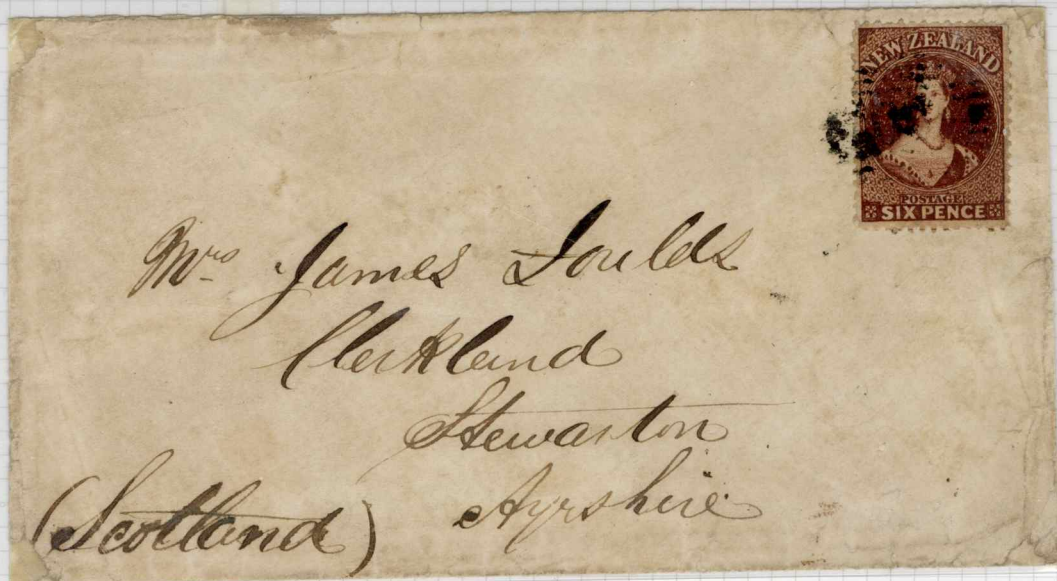 NEW ZEALAND
POSTAGE
SIX PENCE
Mrs James
Clerkland
Stewarton
Ayrshire
(Scotland)